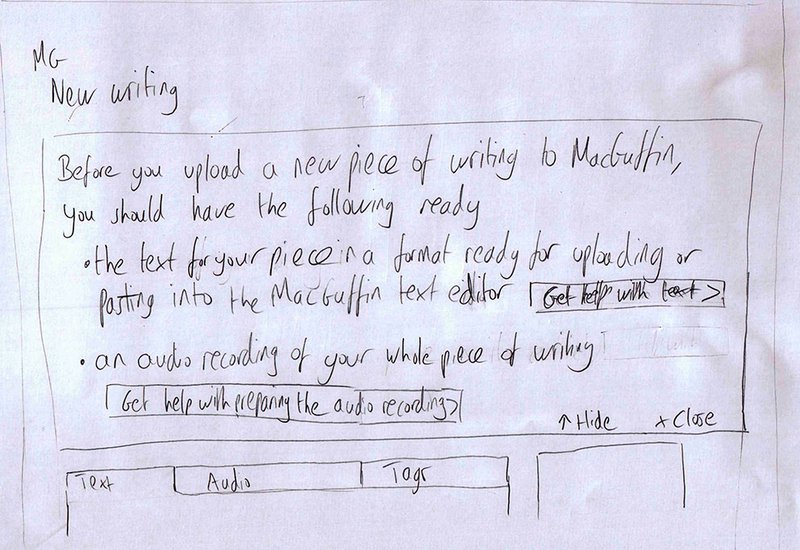 MG
New writing
Before you upload a new piece of writing to MacGuffin,
you should have the following ready
• the text for your piece in a format ready for uploading or
pasting into the MacGuffin text editor Get help with text >
• an audio recording of your whole piece of writing
Get help with preparing the audio recording >
↑ Hide × Close
Text Audio Tags